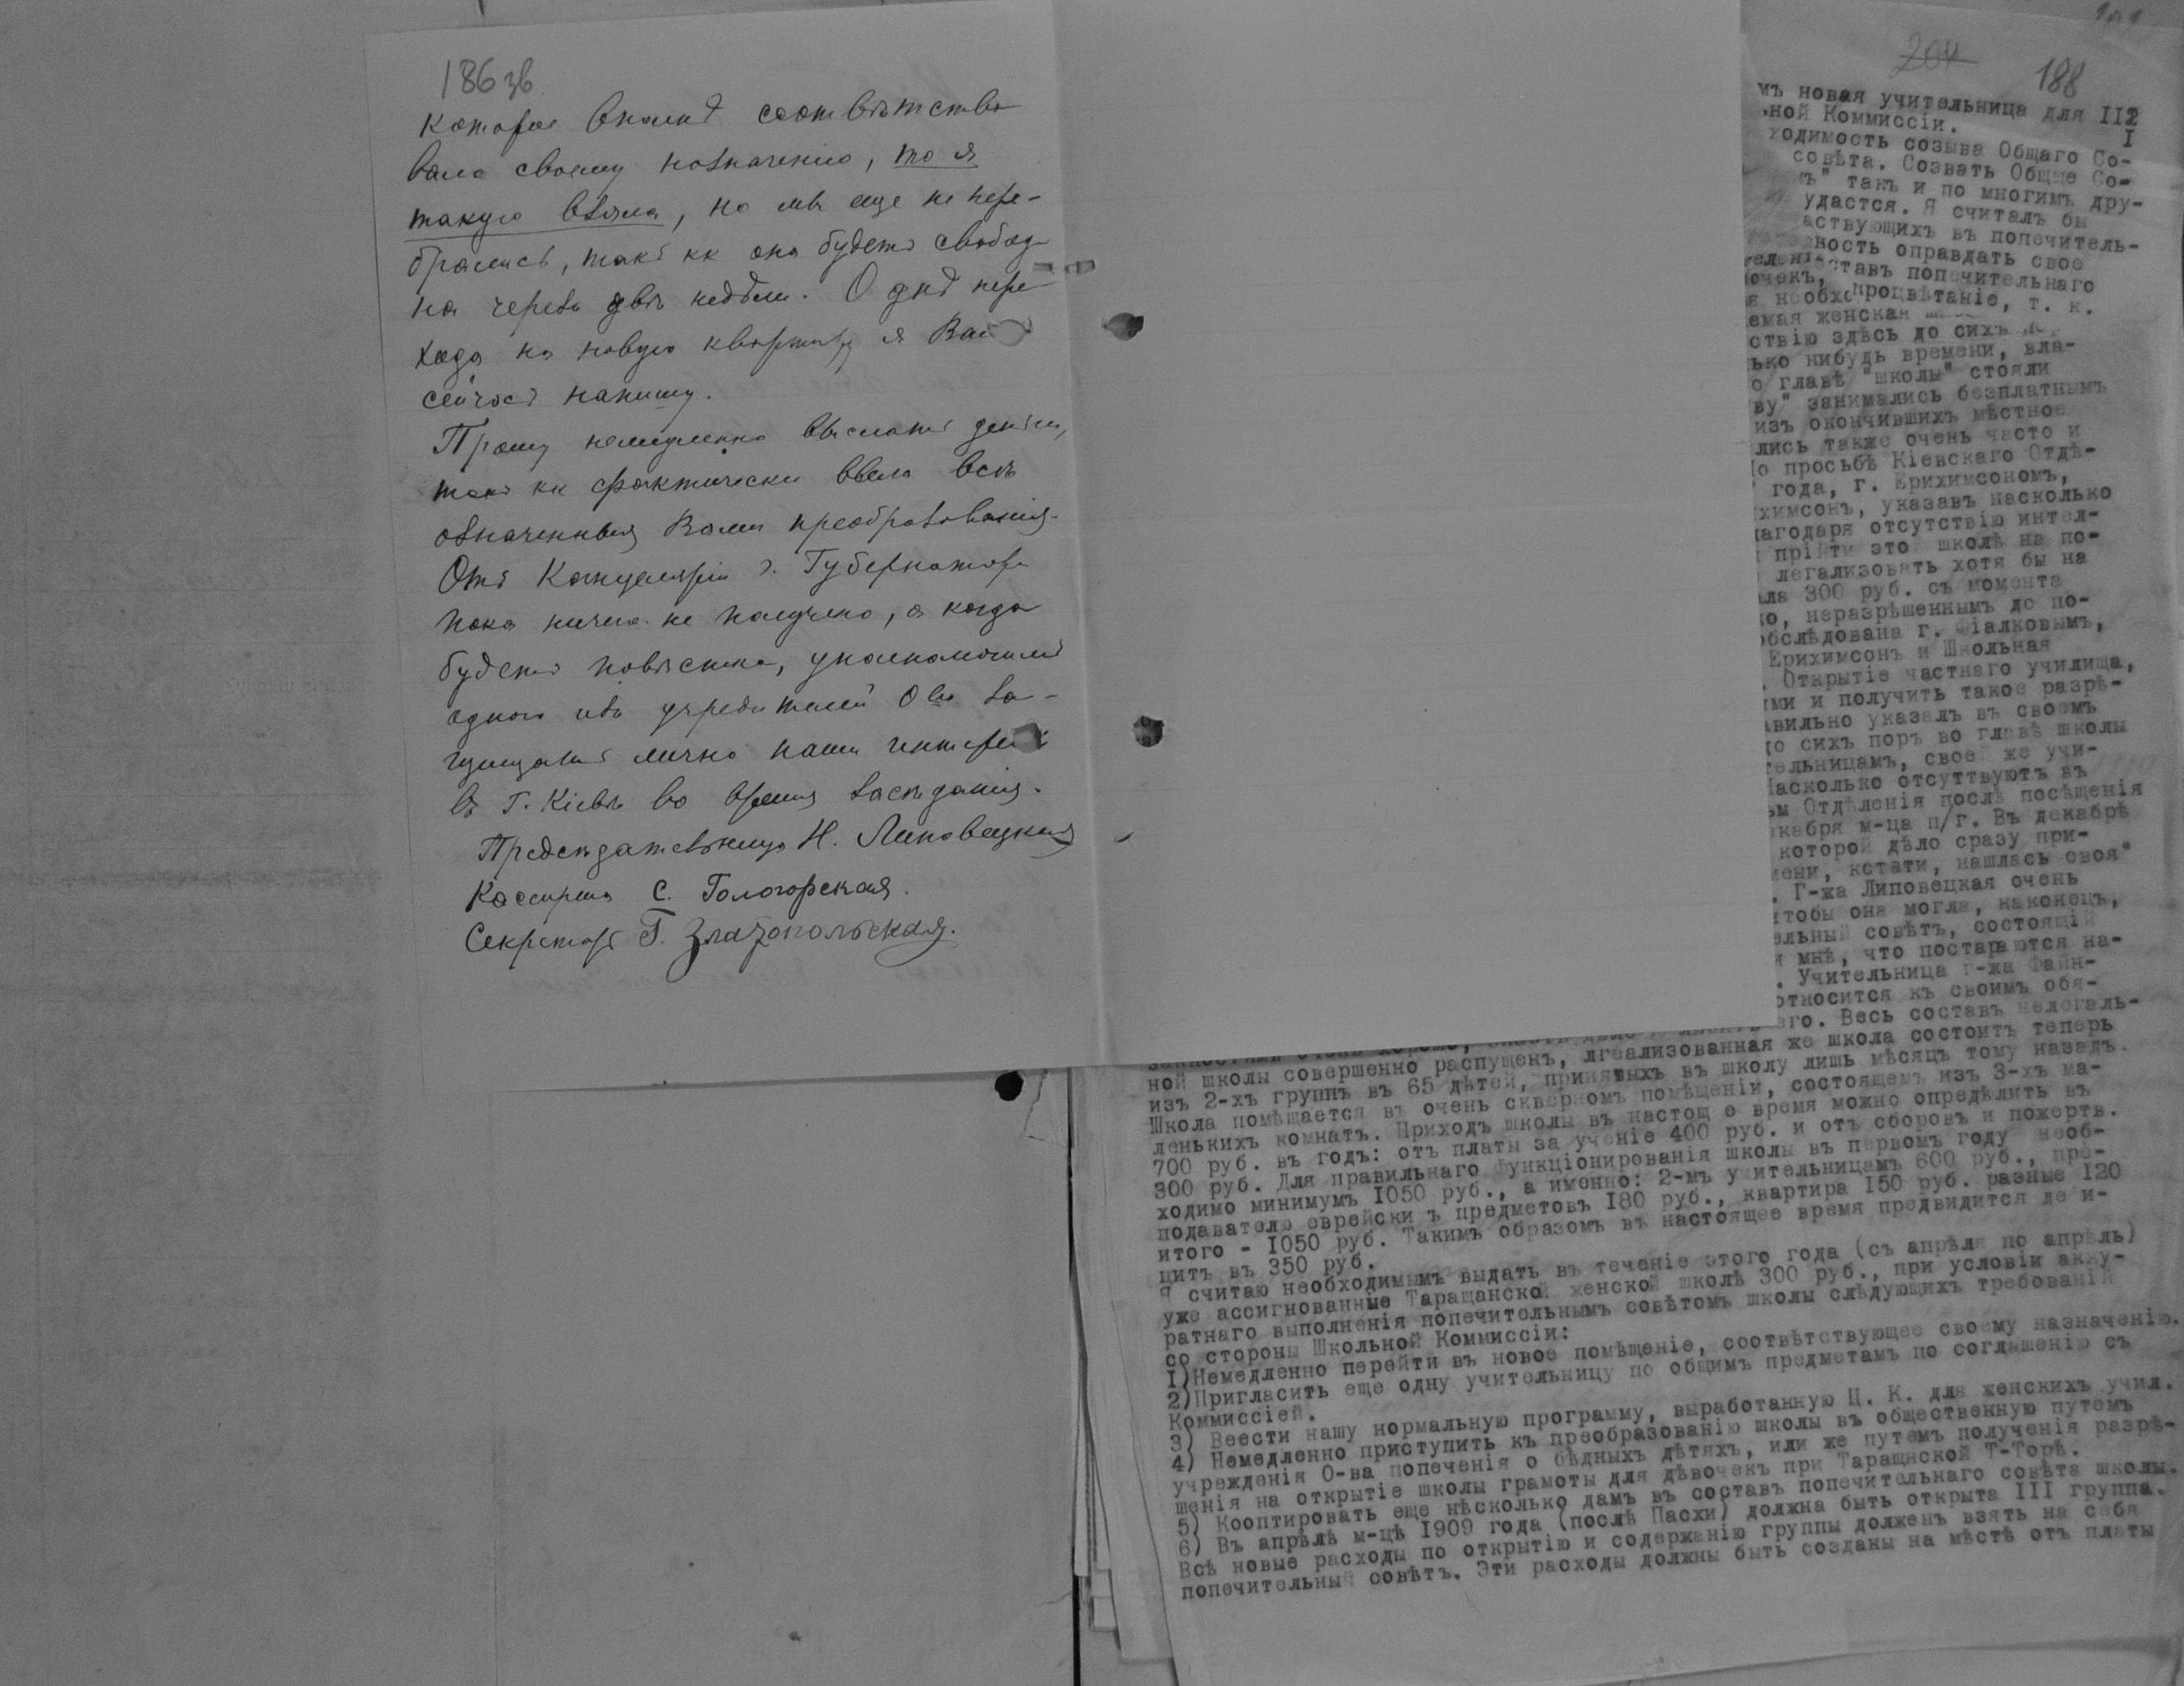 186 зв.
которое вполнѣ соотвѣтство
вало своему назначенію, то я
такую взяла, но мы еще не пере-
брались, такъ кк она будетъ свобод
на черезъ двѣ недѣли. О днѣ пере
хода на новую квартиру я Вам
сейчасъ напишу.
Прошу немедленно выслать деньги,
такъ кк фактически ввела всѣ
означенныя Вами преобразованія.
Отъ Канцеляріи г. Губернатора
пока ничего не получено, а когда
будетъ повѣстка,
одного изъ учредителей О ва за-
щищать лично наши интересы
въ Г. Кіевѣ во время засѣданія.
Предсѣдательница Н. Липовецкая
Кассирша С. Гологорская.
Секретарь Г. Златопольская.
204
188
мъ новая учительница для II2
ной Коммиссіи. I
ходимость созыва Общаго Со-
совѣта. Созвать Общще Со-
ъ" такъ и по многимъ дру-
удастся. Я считалъ бы
аствующихъ въ попечитель-
ность оправдать свое
ставъ попечительнаго
очекъ,
процвѣтаніе, т. к.
необхо
емая женская
ствію здѣсь до сихъ
ько нибудь времени, вла-
о главѣ "школы" стояли
ву" занимались безплатнымъ
изъ окончившихъ мѣстное
лись также очень часто и
о просьбѣ Кіевскаго Отдѣ-
года, г. Ерихимсономъ,
химсонъ, указавъ насколько
агодаря отсутствію интел-
прійти это школѣ на по-
легализовать хотя бы на
ла 300 руб. съ момента
о, неразрѣшеннымъ до по-
обслѣдована г. Фіалковымъ,
Ерихимсонъ и Школьная
. Открытіе частнаго училища,
ми и получить такое разрѣ-
авильно указалъ въ своемъ
до сихъ поръ во главѣ школы
тельницамъ, своей же учи-
Насколько отсуттвуютъ въ
ьм Отдѣленія послѣ посѣщенія
кабря м-ца п/г. Въ декабрѣ
которой дѣло сразу при-
мени, кстати, нашлась своя"
. Г-жа Липовецкая очень
чтобы она могла, наконецъ,
ельный совѣтъ, состоящій
я мнѣ, что постараются на-
. Учительница г-жа Файн-
относится къ своимъ обя-
его. Весь составъ нелегаль-
ной школы совершенно распущенъ, лгеализованная же школа состоитъ теперь
изъ 2-хъ группъ въ 65 дѣтей, принятыхъ въ школу лишь мѣсяцъ тому назадъ.
Школа помѣщается въ очень скверномъ помѣщеніи, состоящемъ изъ 3-хъ ма-
ленькихъ комнатъ. Приходъ школы въ настощ е время можно опредѣлить въ
700 руб. въ годъ: отъ платы за ученіе 400 руб. и отъ сборовъ и пожертв.
300 руб. Для правильнаго функціонированія школы въ первомъ году необ-
ходимо минимумъ I050 руб., а именно: 2-мъ учительницамъ 600 руб., пре-
подавателю еврейски ъ предметовъ I80 руб., квартира I50 руб. разные I20
итого - I050 руб. Такимъ образомъ въ настоящее время предвидится де и-
цитъ въ 350 руб.
Я считаю необходимымъ выдать въ теченіе этого года (съ апрѣля по апрѣль)
уже ассигнованные Таращанской женской школѣ 300 руб., при условіи акку-
ратнаго выполненія попечительнымъ совѣтомъ школы слѣдующихъ требованій
со стороны Школьной Коммиссіи:
I)Немедленно перейти въ новое помѣщеніе, соотвѣтствующее своему назначенію.
2)Пригласить еще одну учительницу по общимъ предметамъ по соглашенію съ
Коммиссіей.
3) Веести нашу нормальную программу, выработанную Ц. К. для женскихъ учил.
4) Немедленно приступить къ преобразованію школы въ общественную путемъ
учрежденія О-ва попеченія о бѣдныхъ дѣтяхъ, или же путемъ полученія разрѣ-
шенія на открытіе школы грамоты для дѣвочекъ при Таращнской Т-Торѣ.
5) Кооптировать еще нѣсколько дамъ въ составъ попечительнаго совѣта школы.
6) Въ апрѣлѣ м-цѣ I909 года (послѣ Пасхи) должна быть открыта III группа.
Всѣ новые расходы по открытію и содержанію группы долженъ взять на себя
попечительный совѣтъ. Эти расходы должны быть созданы на мѣстѣ отъ платы